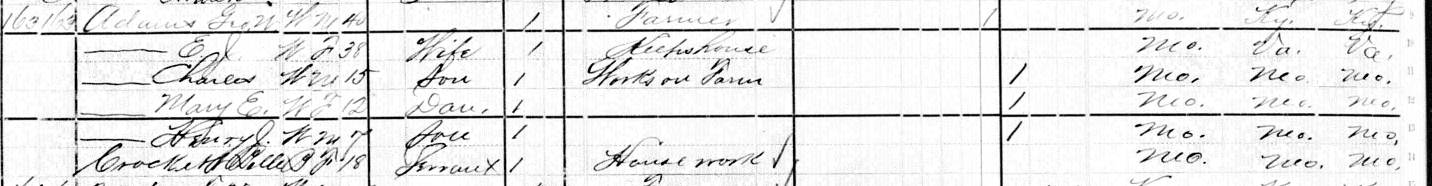 163 163 Adams Geo. W. W M 40 1 Farmer 1 Mo. Ky. Ky.
—— E. J. W F 38 Wife 1 Keeps house Mo. Va. Va.
—— Charles W M 15 Son 1 Works on Farm 1 Mo. Mo. Mo.
—— Mary E. W F 12 Dau. 1 1 Mo. Mo. Mo.
—— Henry J. W M 7 Son 1 1 Mo. Mo. Mo.
Crockett B F 18 Servant 1 House work Mo. Mo. Mo.